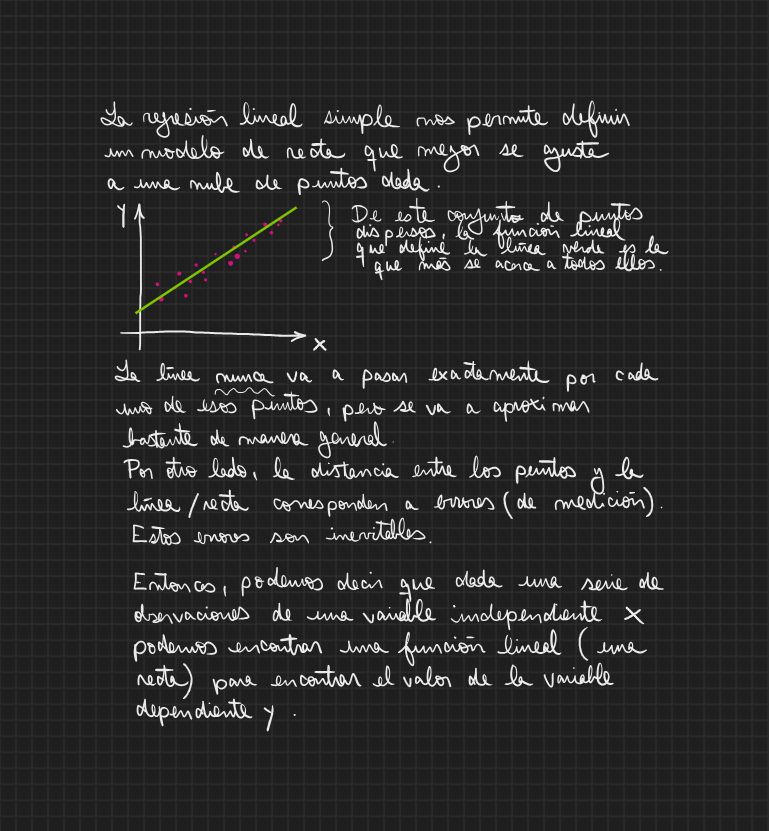 La regresión lineal simple nos permite definir
un modelo de recta que mejor se ajusta
a una nube de puntos dada.
Y
De este conjunto de puntos
dispersos, la función lineal
que define la línea verde es la
que más se acerca a todos ellos.
X
La línea nunca va a pasar exactamente por cada
uno de esos puntos, pero se va a aproximar
bastante de manera general.
Por otro lado, la distancia entre los puntos y la
línea/recta corresponden a errores (de medición).
Estos errores son inevitables.
Entonces, podemos decir que dada una serie de
observaciones de una variable independiente X
podemos encontrar una función lineal (una
recta) para encontrar el valor de la variable
dependiente y.